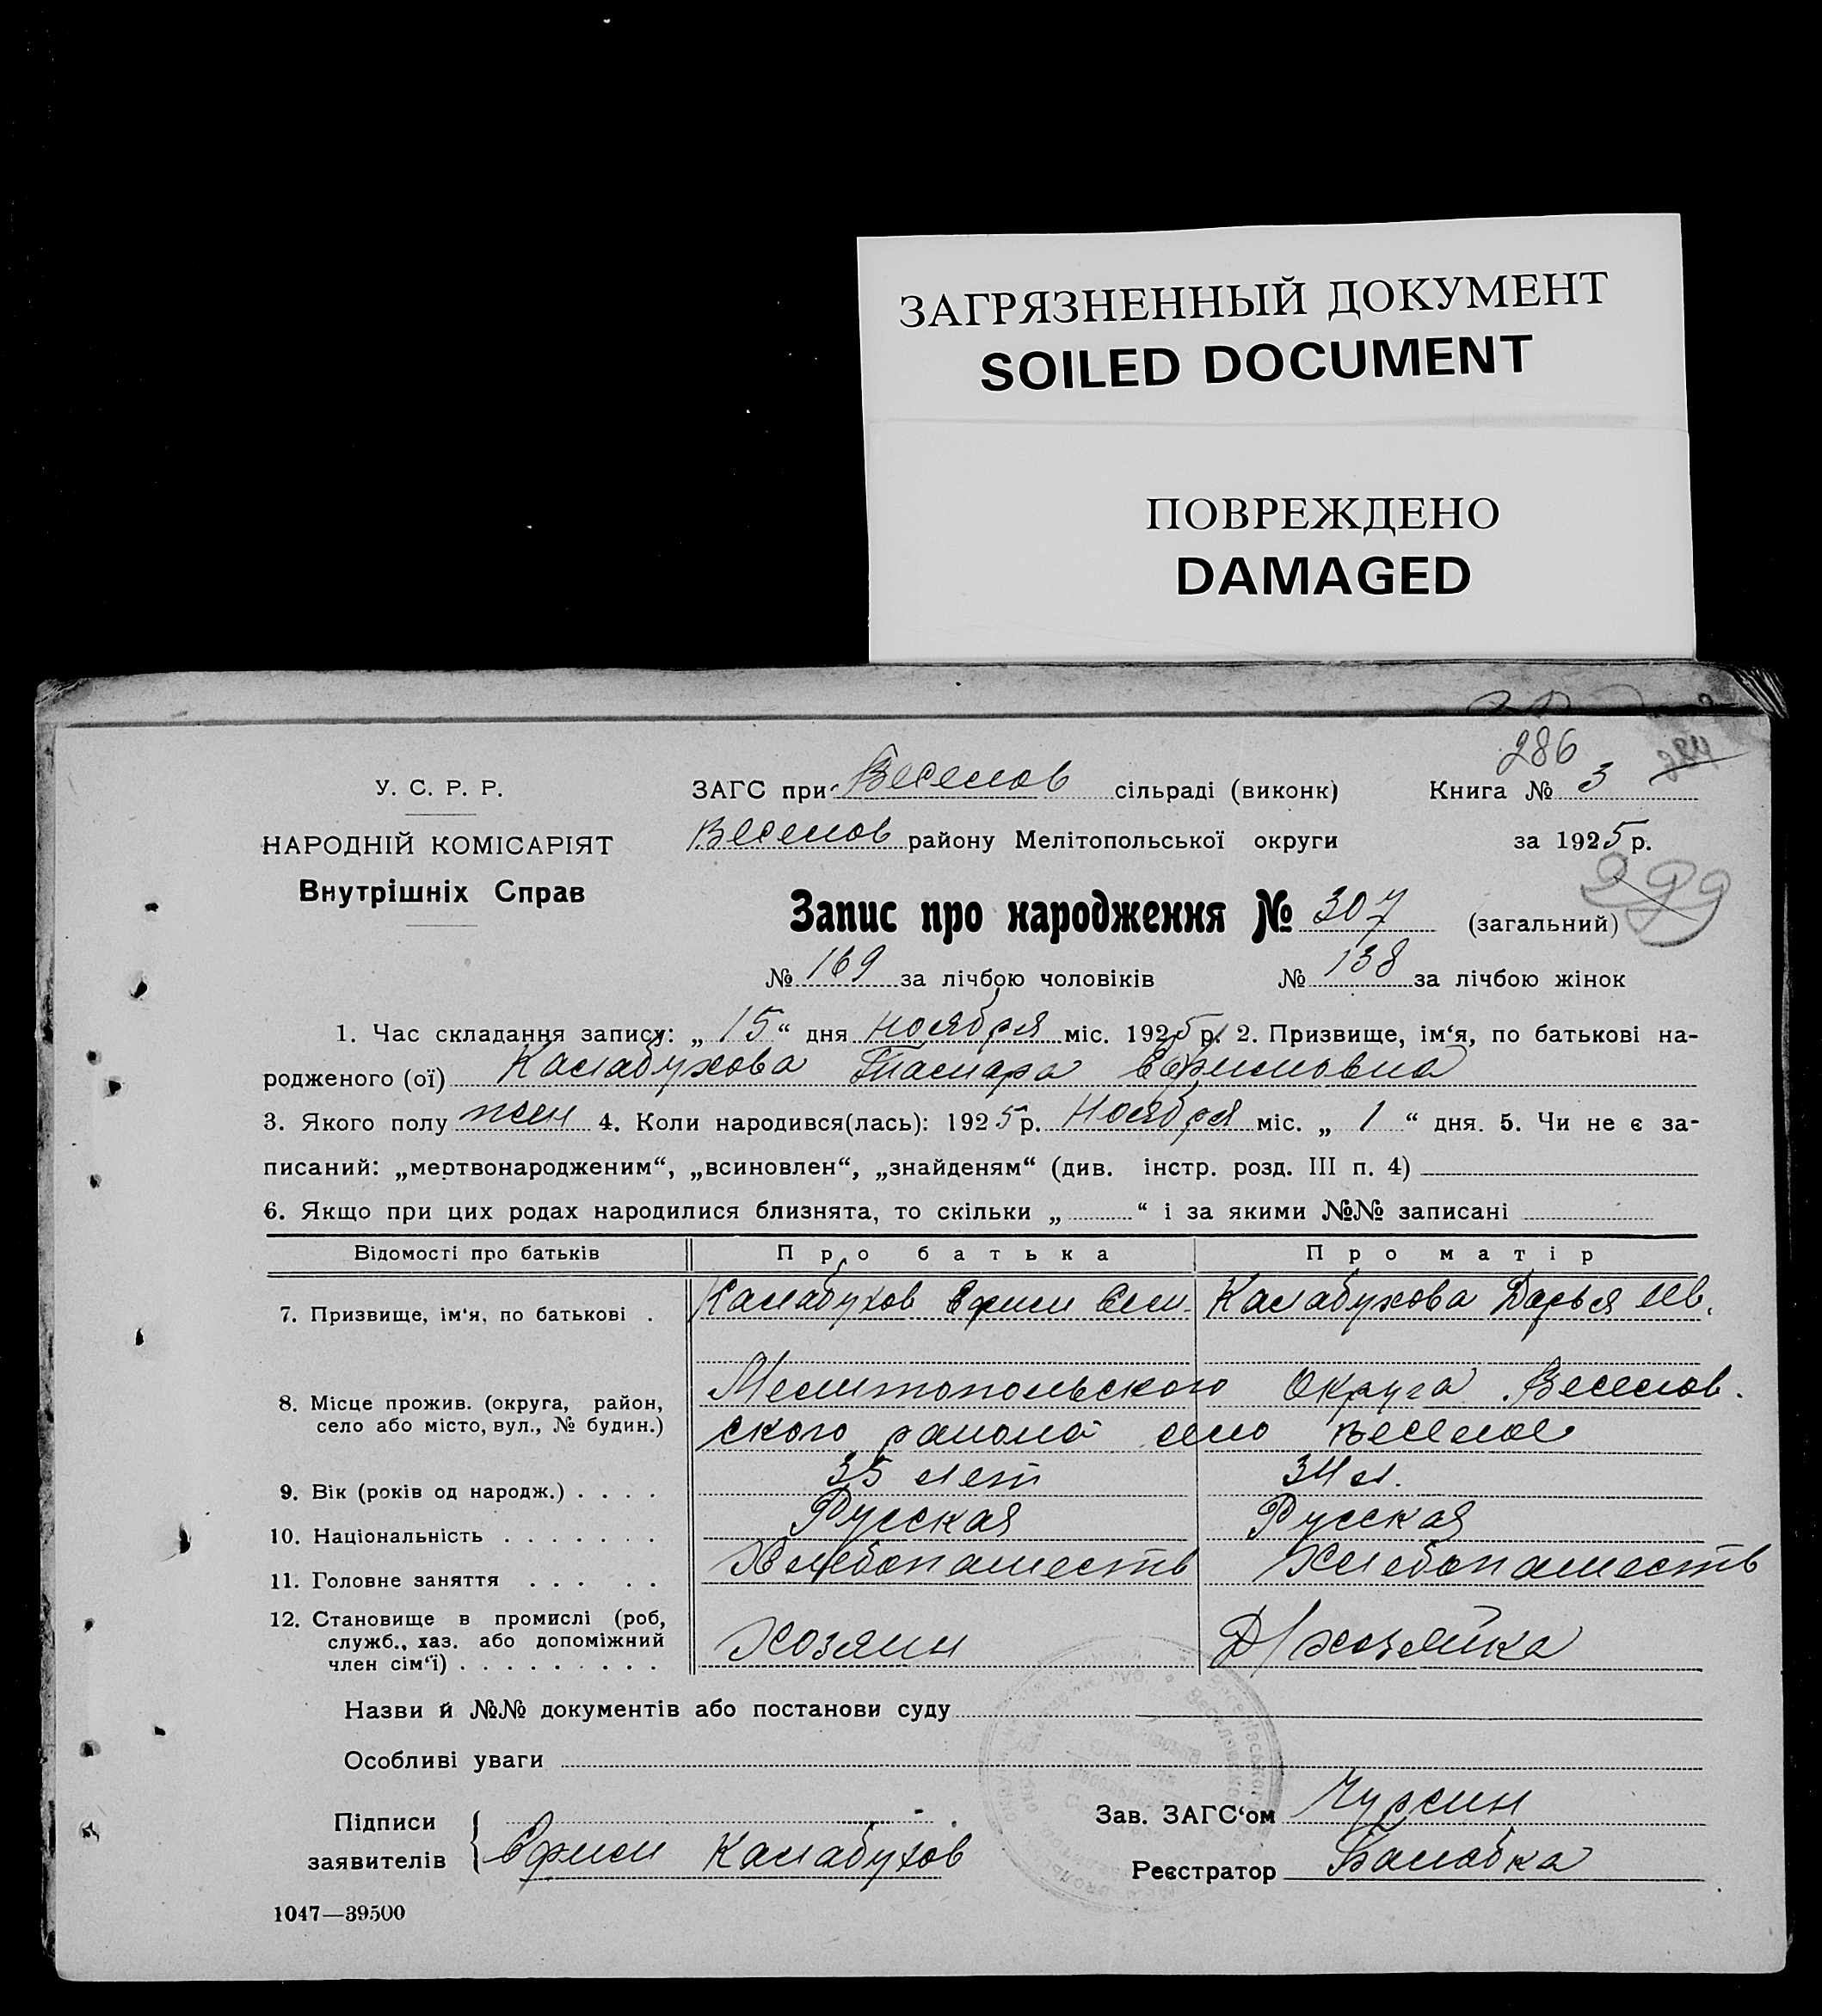 ЗАГРЯЗНЕННЫЙ ДОКУМЕНТ
SOILED DOCUMENT
ПОВРЕЖДЕНО
DAMAGED
286
284
У. С. Р. Р.
ЗАГС при Веселов сільраді (виконк) Книга № 3
НАРОДНІЙ КОМІСАРІЯТ
Веселов району Мелітопольської округи за 1925 р.
Внутрішніх Справ
299
Запис про народження № 307 (загальний)
№ 169 за лічбою чоловіків № 138 за лічбою жінок
1. Час складання запису: „ 15 “ дня ноября міс. 1925 р. 2. Призвище, ім‘я, по батькові на-
родженого (ої) Калабухова Тамара Ефимовна
3. Якого полу жен 4. Коли народився(лась): 1925 р. Ноября міс. „ 1 “ дня. 5. Чи не є за-
писаний: „мертвонародженим“, „всиновлен“, „знайденям“ (див. інстр. розд. III п. 4)
6. Якщо при цих родах народилися близнята, то скільки „ “ і за якими №№ записані
Відомості про батьків Про батька Про матір
7. Призвище, ім‘я, по батькові . Калабухов Ефим Сем. Калабухова Дарья Ив.
8. Місце прожив. (округа, район, Мелитопольского Округа Веселов.
село або місто, вул., № будин.) ского района село Веселое
9. Вік (років од народж.) . . . . 35 лет 34 л.
10. Національність . . . . . . . Русская Русская
11. Головне заняття . . . . . Хлебопашеств Хлебопашеств
12. Становище в промислі (роб,
служб., хаз. або допоміжний Хозяин Д/хозяйка
член сім‘ї) . . . . . . . . .
Назви й №№ документів або постанови суду
Особливі уваги
Підписи Зав. ЗАГС‘ом Чурсин
заявителів Ефим Калабухов Реєстратор Балабка
1047—39500